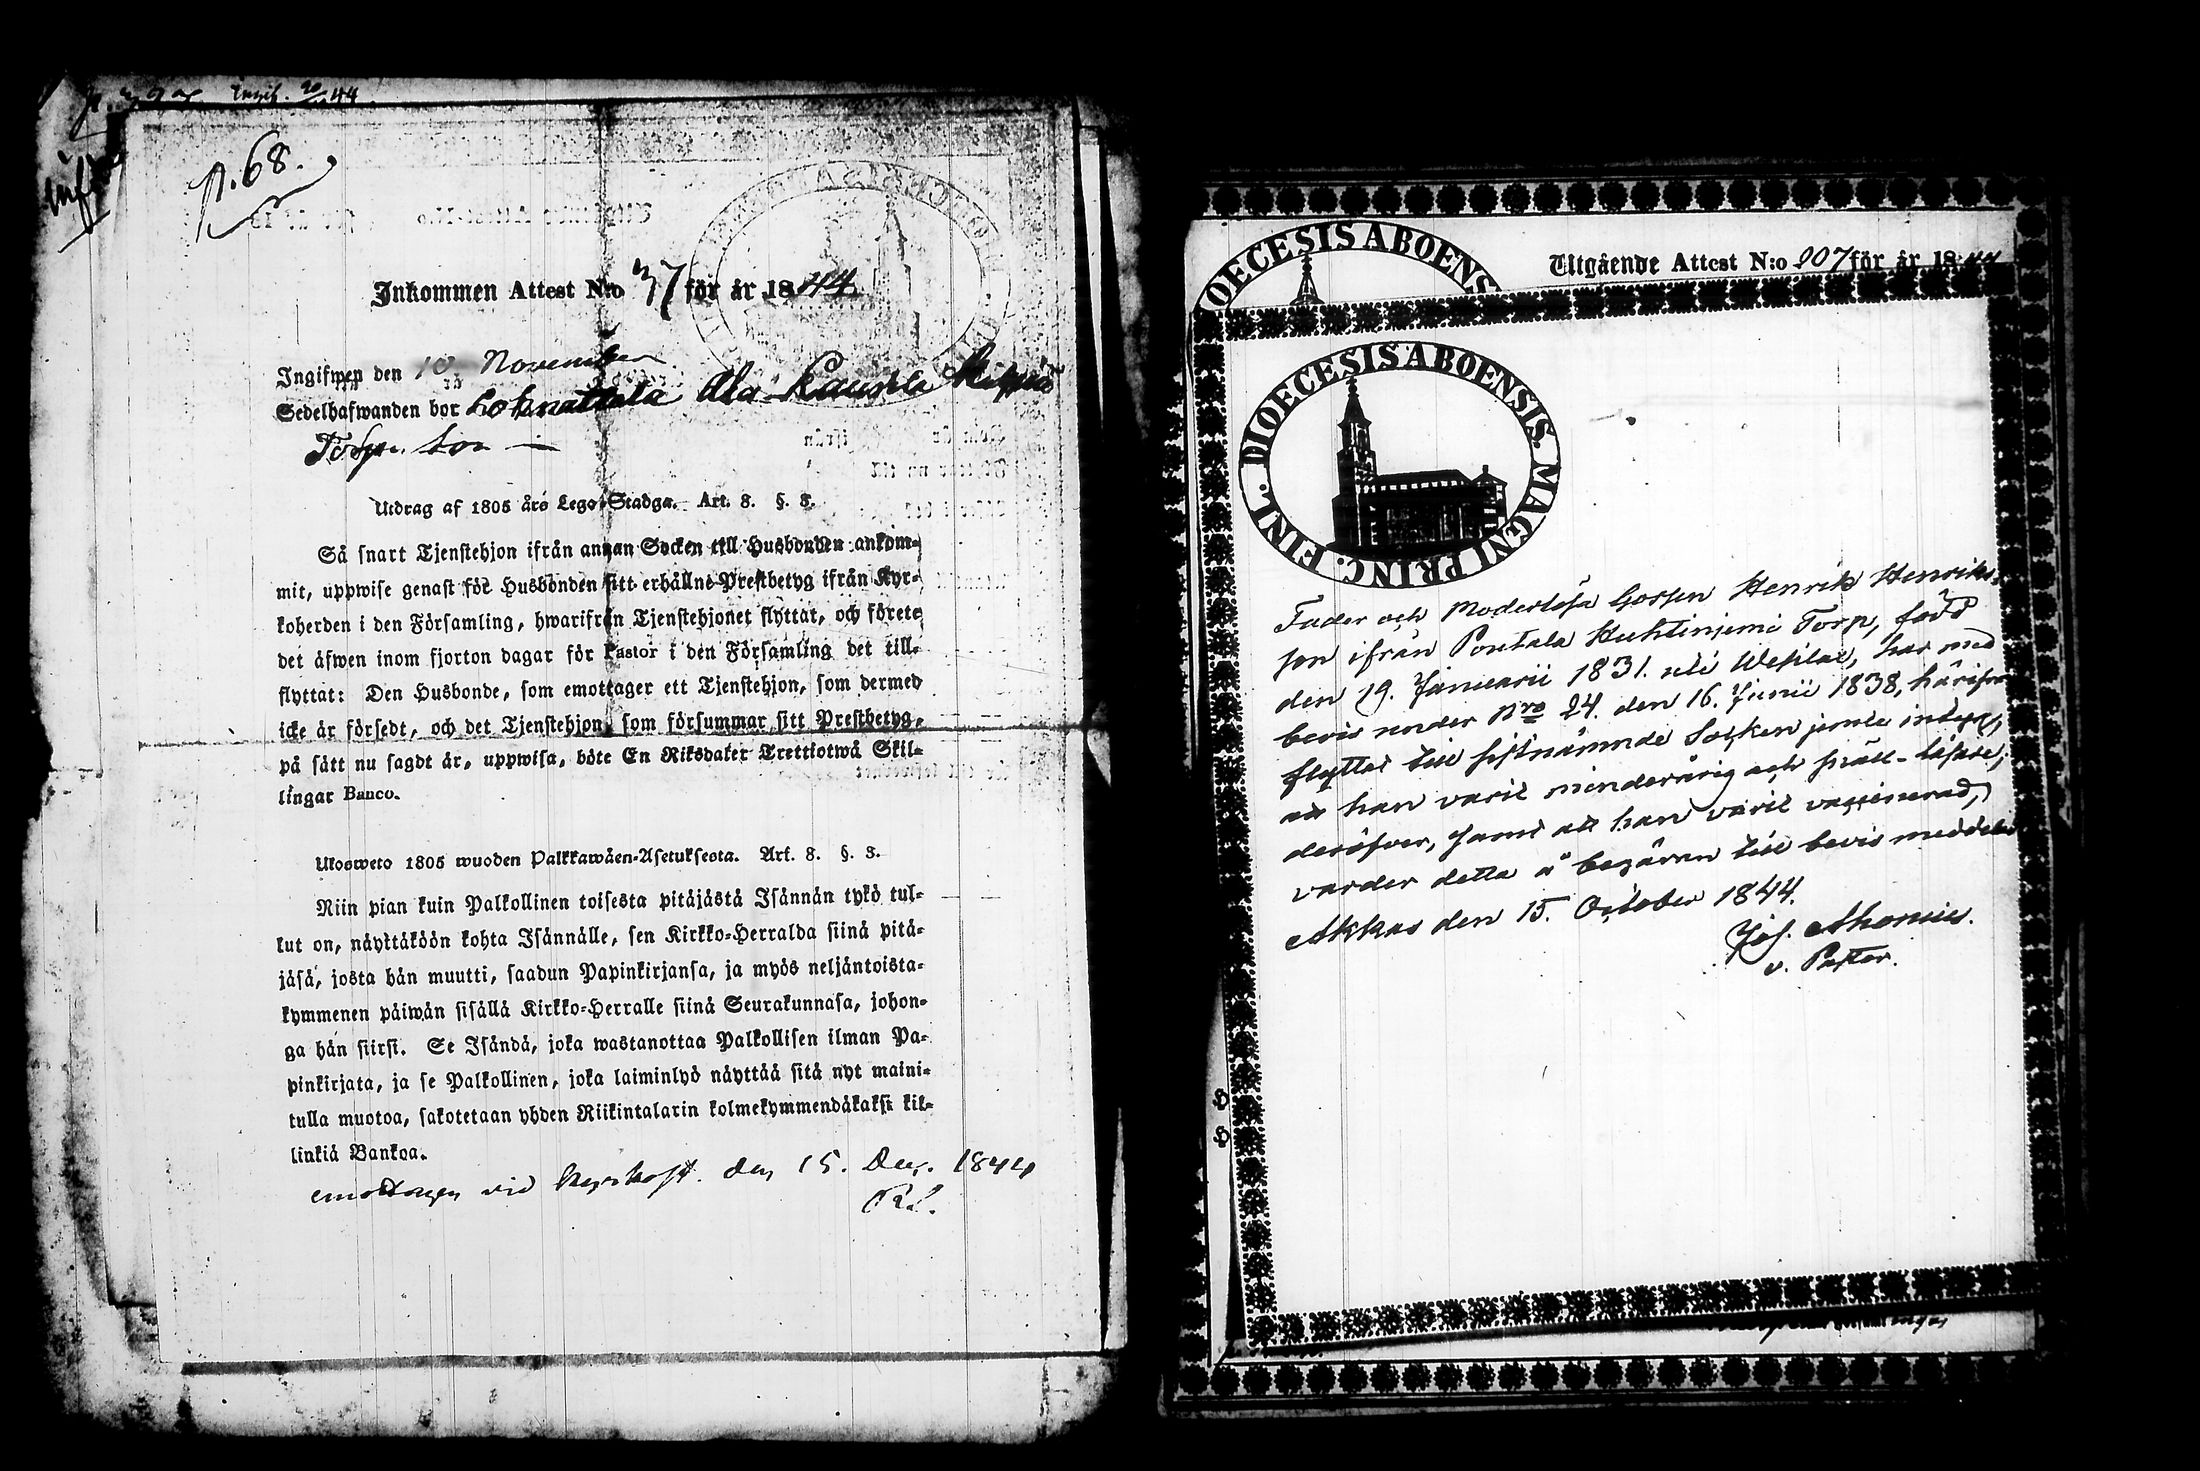 Ingif. 20/11 44.
p. 68.
Inkommen Attest N:o 37 för år 1844.
Ingifwen den 10. November
Sedelhafwanden bor Lohnattala Ala-Kauppila
Torpu Son
Utdrag af 1805 års Lego-Stadga. Art. 8. §. 3.
Så snart Tjenstehjon ifrån annan Socken till Husbonden ankom-
mit, uppwise genast för Husbonden sitt erhållne Prestbetyg ifrån Kyr-
koherden i den Församling, hwarifrån Tjenstehjonet flyttat, och förete
det äfwen inom fjorton dagar för Pastor i den Församling det till-
flyttat: Den Husbonde, som emottager ett Tjenstehjon, som dermed
icke är försedt, och det Tjenstehjon, som försummar sitt Prestbetyg,
på sätt nu sagdt är, uppwisa, böte En Riksdaler Trettiotwå Skil-
lingar Banco.
Ulosweto 1805 wuoden Palkkawäen-Asetuksesta. Art. 8. §. 3.
Niin pian kuin Palkollinen toisesta pitäjästä Isännän tykö tul-
lut on, näyttäköön kohta Isännälle, sen Kirkko-Herralda siinä pitä-
jäsä, josta hän muutti, saadun Papinkirjansa, ja myös neljäntoista-
kymmenen päiwän sisällä Kirkko-Herralle siinä Seurakunnasa, johon-
ga hän siirsi. Se Isändä, joka wastanottaa Palkollisen ilman Pa-
pinkirjata, ja se Palkollinen, joka laiminlyö näyttää sitä nyt maini-
tulla muotoa, sakotetaan yhden Riikintalarin kolmekymmendäkaksi kil-
linkiä Bankoa.
emottagen vid den 15. Dec. 1844
R.L.
DIOECESIS ABOENS
Utgående Attest N:o 207 för år 1844
DIOECESIS ABOENSIS. MAGNI PRINC. FINL.
Fader och Moderlösa Gossen Henrik Henriks-
son ifrån Pontala Huhtinjemi Torp, född
den 19. Januarii 1831. uti Wesilax, har med
bevis under Nro 24. den 16. Junii 1838, härifrån
flyttat till sistnämnde Socken jemte intyg,
att han varit minderårig och svält-läsare;
deröfver, samt att han varit vaccinerad,
varder detta å begäran till bevis meddeladt
Akkas den 15. October 1844.
Joh. Ahonius.
v. Pastor.